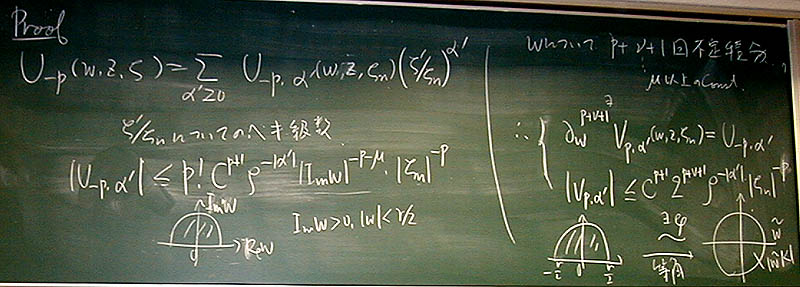 Proof
U₋ₚ(w,z,ζ) = Σ_{α'≥0} U₋ₚ,α'(w,z,ζₙ)(ζ'/ζₙ)^{α'}
ζ'/ζₙ についてのベキ級数
|U₋ₚ,α'| ≤ p! C^{p+1} ρ^{-|α'|} |Im w|^{-p-μ} · |ζₙ|^{-p}
Im w
Im w > 0, |w| < r/2
Re w
0
wについて p+ν+1回不定積分
μ以上のconst.
∴ { ∂_w^{p+ν+1} ∃V_{p,α'}(w,z,ζₙ) = U₋ₚ,α'
|V_{p,α'}| ≤ C^{p+1} 2^{p+ν+1} ρ^{-|α'|} |ζₙ|^{-p}
-r/2 0 r/2
∃φ
~
等角
w̃
|w̃|<1